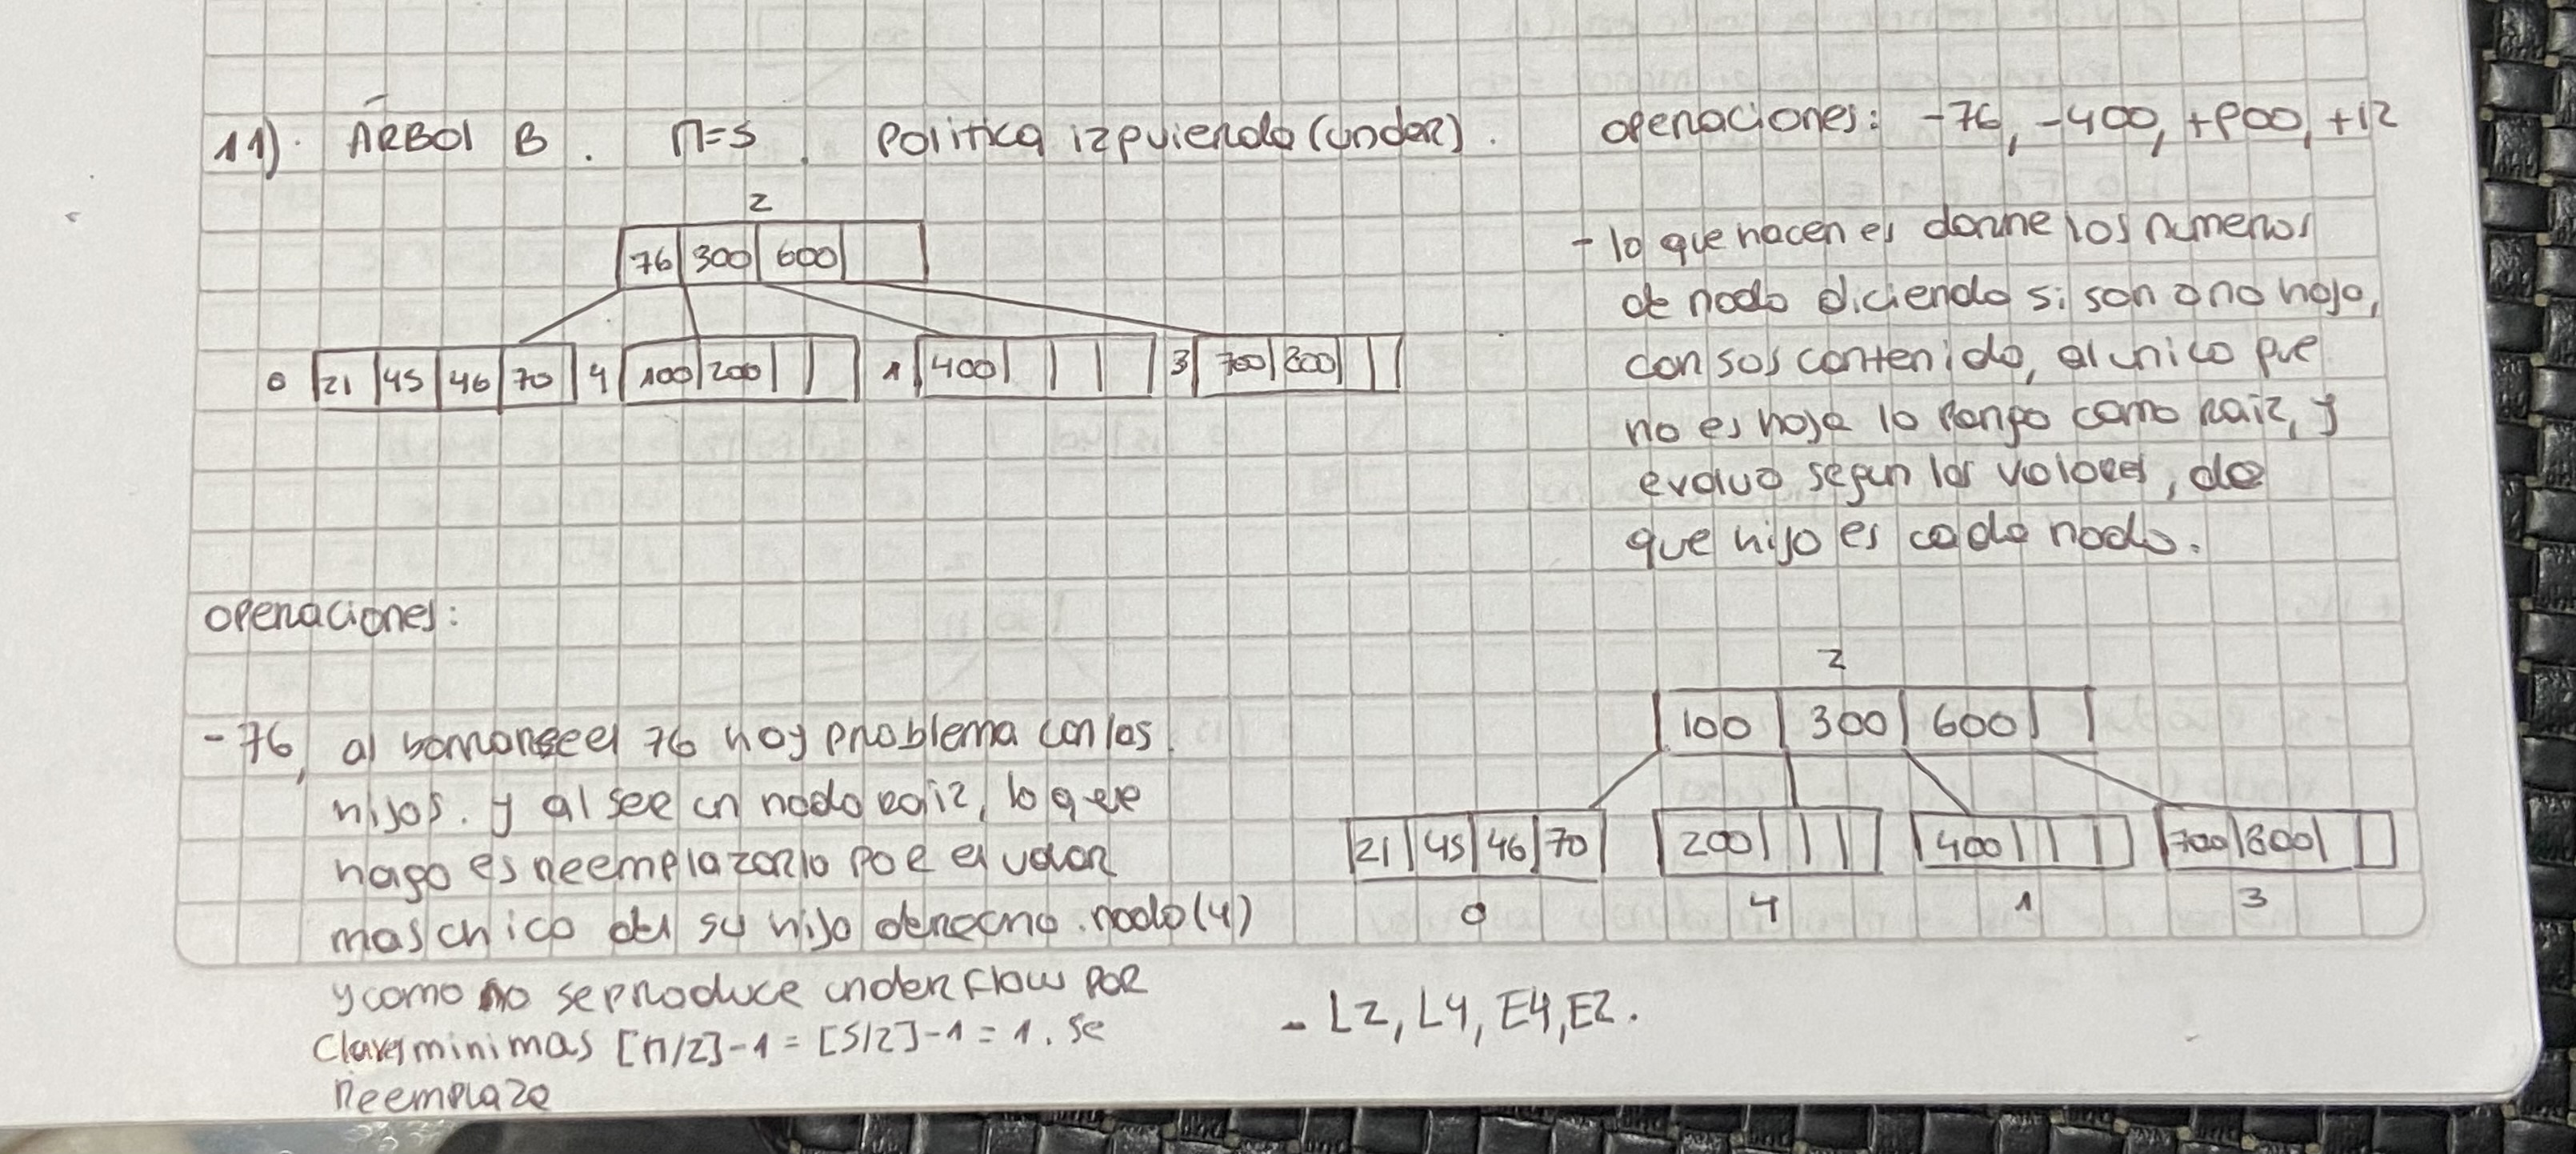 11). ÁRBOl B. M=5. Politica izquierda (under). operaciones: -76, -400, +900, +12
2
76 300 600
0 21 45 46 70 4 100 200 1 400 3 700 800
- lo que hacen es darme los numeros
de nodo diciendo si son o no hoja,
con sus contenido, al unico que
no es hoja lo pongo como raiz, y
evaluo segun los valores, de
que hijo es cada nodo.
operaciones:
-76, al borrarse el 76 hay problema con los
hijos. y al ser un nodo raiz, lo que
hago es reemplazarlo por el valor
mas chico del su hijo derecho. nodo (4)
y como no se produce underflow por
claves minimas [M/2]-1 = [5/2]-1 = 1. se
reemplaza
2
100 300 600
21 45 46 70 200 400 700 800
0 4 1 3
- L2, L4, E4, E2.